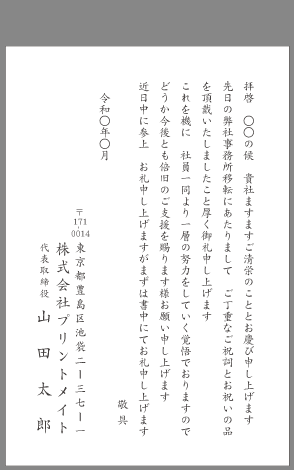 拝啓　〇〇の候　貴社ますますご清栄のこととお慶び申し上げます
先日の弊社事務所移転にあたりまして　ご丁重なご祝詞とお祝いの品
を頂戴いたしましたこと厚く御礼申し上げます
これを機に　社員一同より一層の努力をしていく覚悟でおりますので
どうか今後とも倍旧のご支援を賜ります様お願い申し上げます
近日中に参上　お礼申し上げますがまずは書中にてお礼申し上げます
敬具
令和〇年〇月
〒171-0014
東京都豊島区池袋二ー三七ー一
株式会社プリントメイト
代表取締役　山田太郎